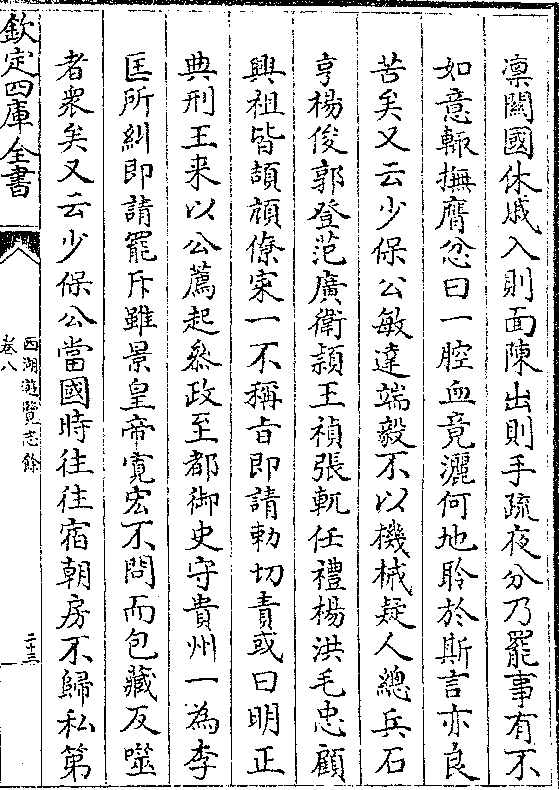 凛闗國休戚入則面陳出則手疏夜分乃罷事有不
如意輙撫膺忿曰一腔血竟灑何地聆於斯言亦良
苦矣又云少保公敏達端毅不以機械疑人總兵石
亨楊俊郭登范廣衛頴王禎張軏任禮楊洪毛忠顧
興祖皆頡頏僚寀一不稱㫖即請勅切責或曰明正
典刑王来以公薦起叅政至都御史守貴州一為李
匡所糾即請罷斥雖景皇帝寛宏不問而包藏反噬
者衆矣又云少保公當國時往往宿朝房不歸私第
欽定四庫全書
西湖遊覽志餘
卷八
二十三